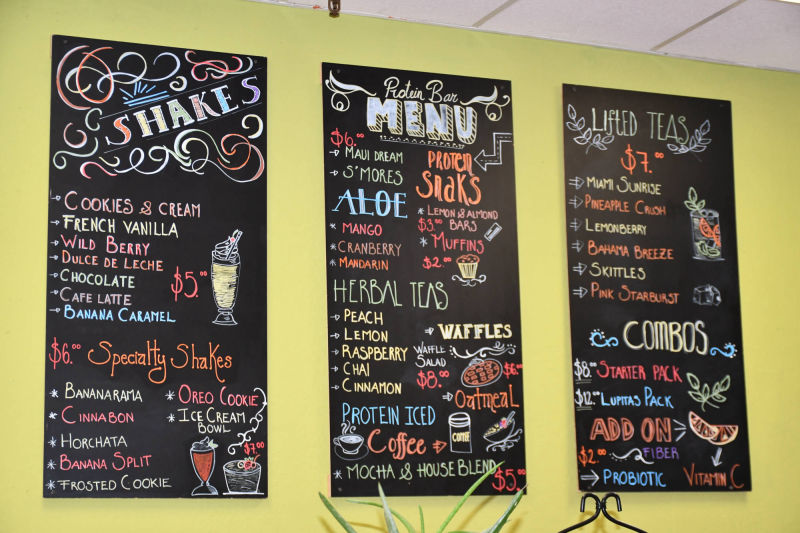 SHAKES
COOKIES & CREAM
FRENCH VANILLA
WILD BERRY
DULCE DE LECHE
CHOCOLATE
$5.00
CAFE LATTE
BANANA CARAMEL
$6.00 Specialty Shakes
* BANANARAMA
* CINNABON
* HORCHATA
* BANANA SPLIT
* FROSTED COOKIE
* OREO COOKIE
* ICE CREAM BOWL
$7.00
Protein Bar
MENU
$6.00
MAUI DREAM
S'MORES
ALOE
* MANGO
* CRANBERRY
* MANDARIN
PROTEIN
SNAKS
* LEMON & ALMOND
$3.00 BARS
* MUFFINS
$2.00
HERBAL TEAS
PEACH
LEMON
RASPBERRY
CHAI
CINNAMON
WAFFLES
WAFFLE
SALAD
$8.00
$6.00
OATMEAL
PROTEIN ICED
Coffee
COFFEE
* MOCHA & HOUSE BLEND
$5.00
LIFTED TEAS
$7.00
MIAMI SUNRISE
PINEAPPLE CRUSH
LEMONBERRY
BAHAMA BREEZE
SKITTLES
PINK STARBURST
COMBOS
$8.00 STARTER PACK
$12.00 LUPITAS PACK
ADD ON
$2.00 FIBER
PROBIOTIC VITAMIN C